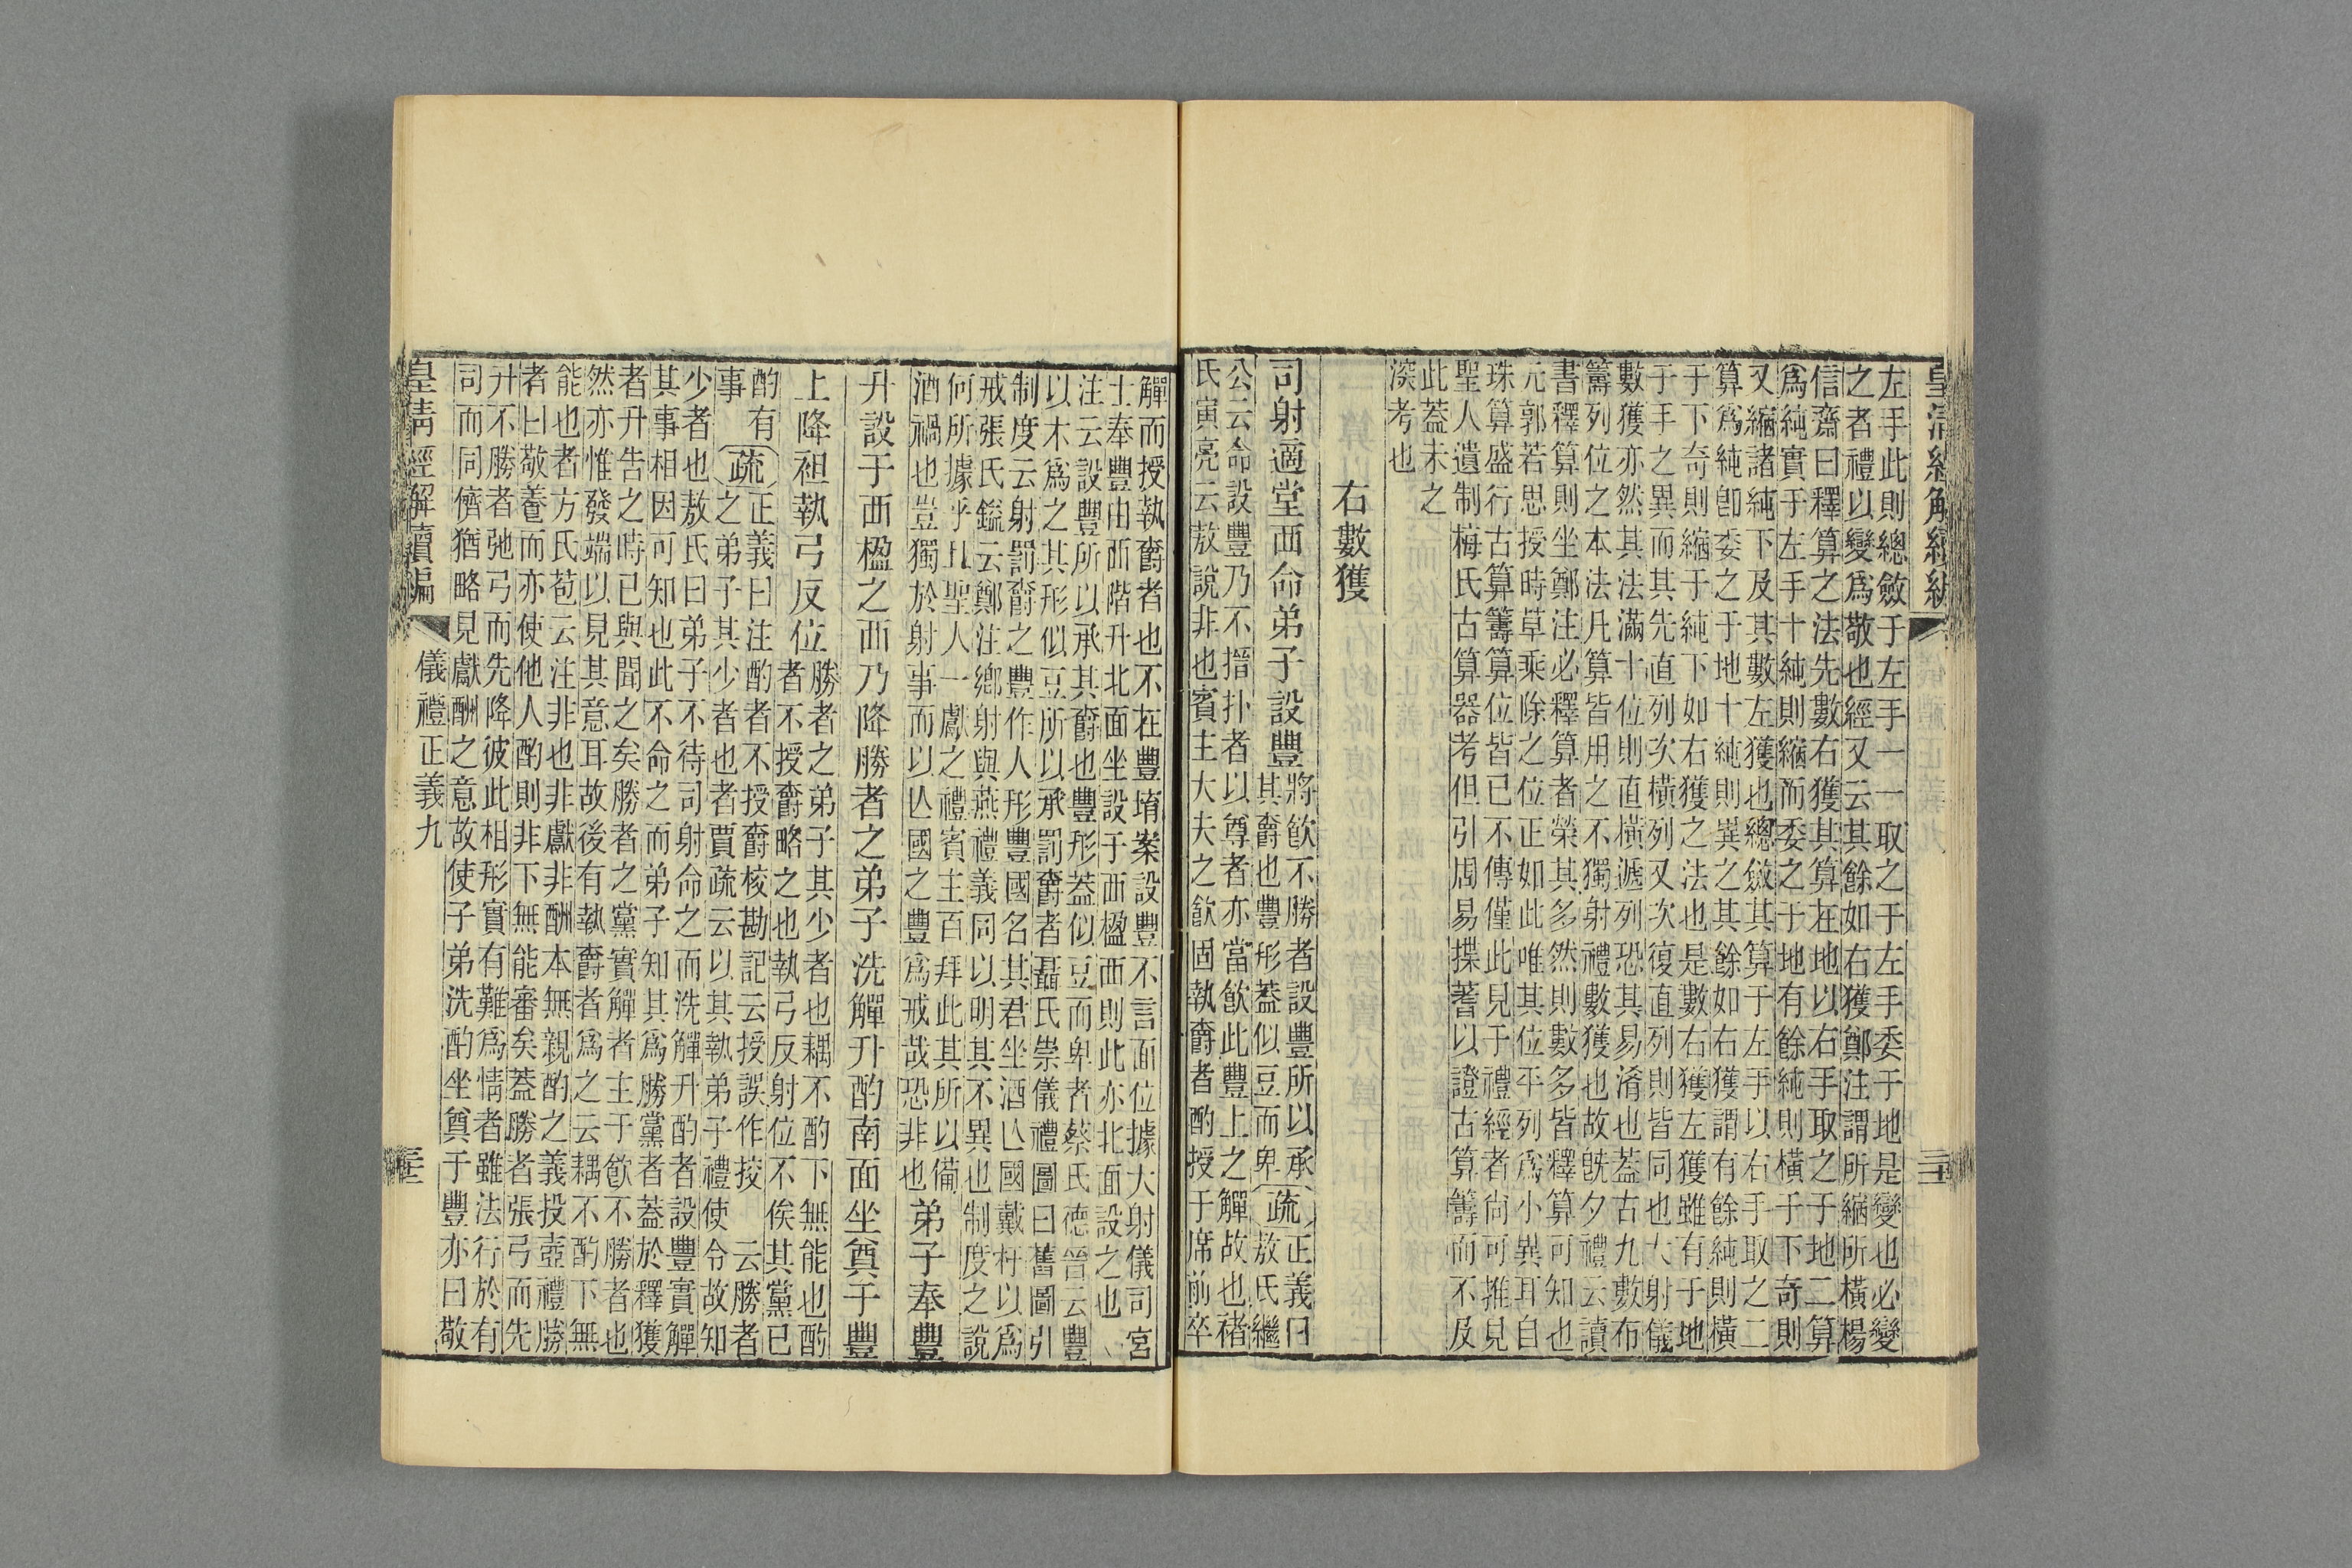 皇清經解續編
三十
左手此則總斂于左手一一取之于左手委于地是變也必變
之者禮以變爲敬也經又云其餘如右獲鄭注謂所縮所橫楊
信齋曰釋算之法先數右獲其算在地以右手取之于地二算
爲純實于左手十純則縮而委之于地有餘純則橫于下奇則
又縮諸純下及其數左獲也總斂其算于左手以右手取之二
算爲純卽委之于地十純則異之其餘如右獲謂有餘純則橫
于下奇則縮于純下如右獲之法也是數右獲左獲雖有于地
于手之異而其先直列次橫列又次復直列則皆同也大射儀
數獲亦然其法滿十位則直橫遞列恐其易淆也蓋古九數布
籌列位之本法凡算皆用之不獨射禮數獲也故旣夕禮云讀
書釋算則坐鄭注必釋算者榮其多然則數多皆釋算可知也
元郭若思授時草乘除之位正如此唯其位平列爲小異耳自
珠算盛行古算籌算位皆已不傳僅此見于禮經者尙可推見
聖人遺制梅氏古算器考但引周易揲蓍以證古算籌而不及
此蓋未之
深考也
右數獲
司射適堂西命弟子設豐
將飮不勝者設豐所以承
其爵也豐形蓋似豆而卑
疏
正義曰
敖氏繼
公云命設豐乃不搢扑者以尊者亦當飮此豐上之觶故也褚
氏寅亮云敖說非也賓主大夫之飮固執爵者酌授于席前卒
觶而授執爵者也不在豐堉案設豐不言面位據大射儀司宮
士奉豐由西階升北面坐設于西楹西則此亦北面設之也
注云設豐所以承其爵也豐形蓋似豆而卑者蔡氏德晉云豐
以木爲之其形似豆所以承罰爵者聶氏崇儀禮圖曰舊圖引
制度云射罰爵之豐作人形豐國名其君坐酒亾國戴杅以爲
戒張氏鎰云鄭注鄉射與燕禮義同以明其不異也制度之說
何所據乎且聖人一獻之禮賓主百拜此其所以備
酒禍也豈獨於射事而以亾國之豐爲戒哉恐非也
弟子奉豐
升設于西楹之西乃降勝者之弟子洗觶升酌南面坐奠于豐
上降袒執弓反位
勝者之弟子其少者也耦不酌下無能也酌
者不授爵略之也執弓反射位不俟其黨已
酌有
事
疏
正義曰注酌者不授爵校勘記云授誤作挍 云勝者
之弟子其少者也者賈疏云以其執弟子禮使令故知
少者也敖氏曰弟子不待司射命之而洗觶升酌者設豐實觶
其事相因可知也此不命之而弟子知其爲勝黨者蓋於釋獲
者升告之時已與聞之矣勝者之黨實觶者主于飮不勝者也
然亦惟發端以見其意耳故後有執爵者爲之云耦不酌下無
能也者方氏苞云注非也非獻非酬本無親酌之義投壺禮勝
者曰敬養而亦使他人酌則非下無能審矣蓋勝者張弓而先
升不勝者弛弓而先降彼此相形實有難爲情者雖法行於有
司而同儕猶略見獻酬之意故使子弟洗酌坐奠于豐亦曰敬
皇清經解續編
儀禮正義九